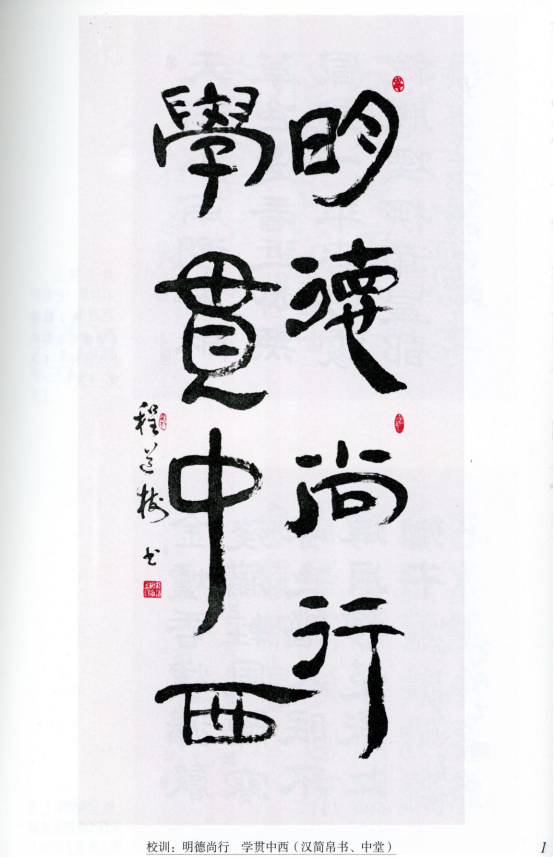 明德尚行
學貫中西
程道樹书
校训：明德尚行　学贯中西（汉简帛书、中堂）
1